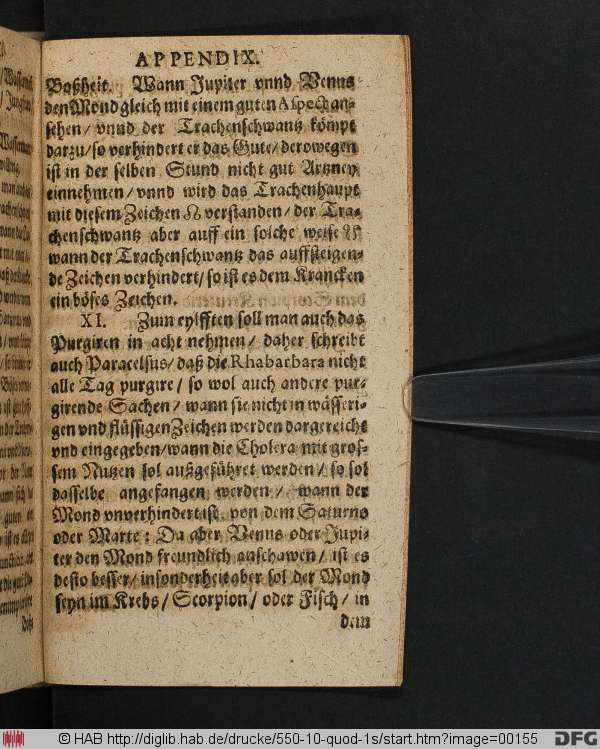 APPENDIX.
Boßheit. Wann Jupiter vnnd Venus
den Mond gleich mit einem guten Aspect an-
sehen / vnnd der Trachenschwantz kömpt
darzu / so verhindert er das Gute / derowegen
ist in der selben Stund nicht gut Artzney
einnehmen / vnnd wird das Trachenhaupt
mit diesem Zeichen ☊ verstanden / der Tra-
chenschwantz aber auff ein solche weise ☋
wann der Trachenschwantz das auffsteigen-
de Zeichen verhindert / so ist es dem Krancken
ein böses Zeichen.
XI. Zum eylfften soll man auch das
Purgiren in acht nehmen / daher schreibt
auch Paracelsus / daß die Rhabarbara nicht
alle Tag purgire / so wol auch andere pur-
girende Sachen / wann sie nicht in wässeri-
gen vnd flüssigen Zeichen werden dargereicht
vnd eingegeben / wann die Cholera mit gros-
sem Nutzen sol außgeführet werden / so sol
dasselbe angefangen werden / wann der
Mond vnverhindert ist von dem Saturno
oder Marte: Da aber Venus oder Jupi-
ter den Mond freundlich anschawen / ist es
desto besser / insonderheit aber sol der Mond
seyn im Krebs / Scorpion / oder Fisch / in
dem
© HAB http://diglib.hab.de/drucke/550-10-quod-1s/start.htm?image=00155
DFG